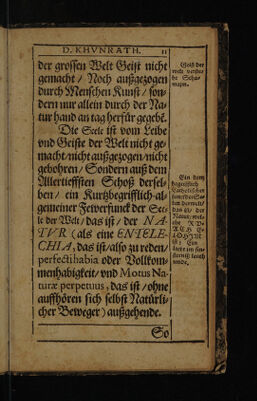 D. KHVNRATH. 11
der grossen Welt Geist nicht
gemacht / Noch außgezogen
durch Menschen Kunst / son-
dern nur allein durch der Na-
tur hand an tag herfür gegebē.
Die Seele ist vom Leibe
und Geiste der Welt nicht ge-
macht / nicht außgezogen / nicht
gebohren / Sondern auß dem
Allertieffsten Schoß dersel-
ben / ein Kurtzbegrifflich-al-
gemeiner Fewerfunck der See-
le der Welt / das ist / der NA-
TVR (als eine ENTELE-
CHIA, das ist / also zu reden /
perfectihabia oder Vollkom-
menhabigkeit / und Motus Na-
turæ perpetuus, das ist / ohne
auffhören sich selbst Natürli-
cher Beweger) außgehende.
So
Geist der
Ein dem
der Natur
das ist /